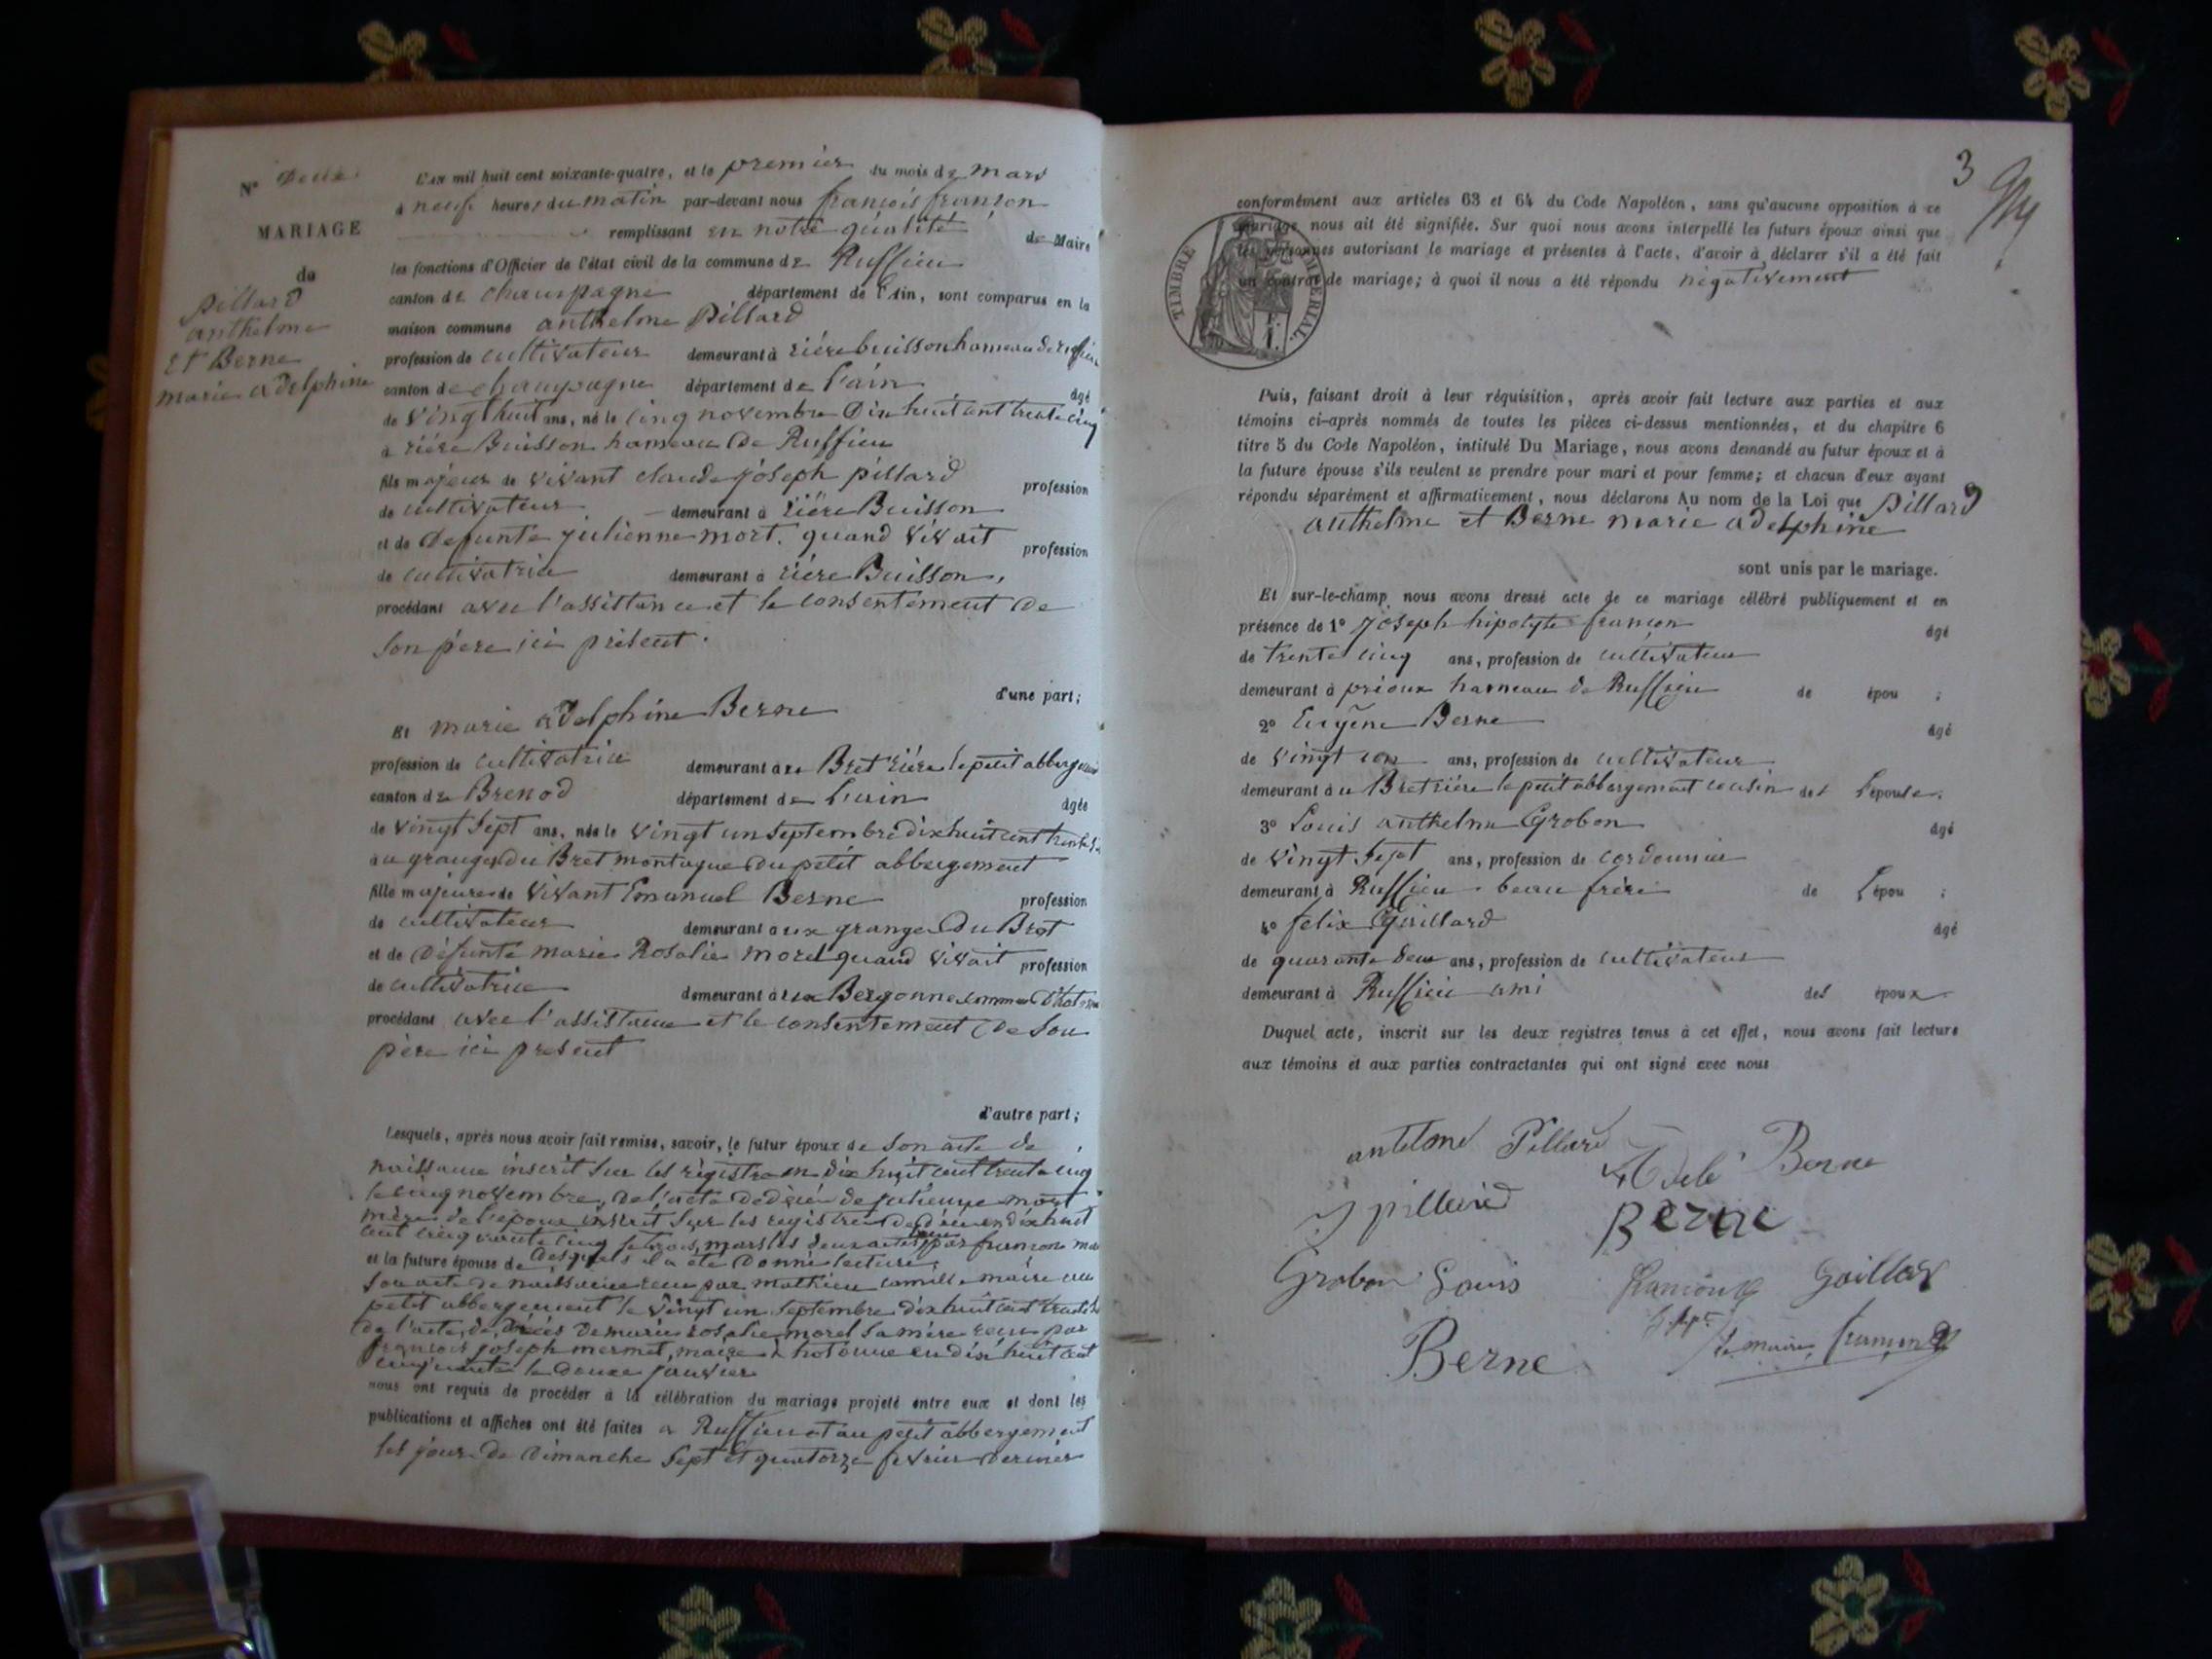 N° Deux.
MARIAGE
de
pillard
anthelme
Et Berne
marie adelphine
L'an mil huit cent soixante-quatre, et le premier du mois de mars
à neuf heures du matin par-devant nous françois françon
remplissant en notre qualité de Maire
les fonctions d'Officier de l'état civil de la commune de Ruffieu
canton de champagne département de l'Ain, sont comparus en la
maison commune anthelme Pillard
profession de cultivateur demeurant à rière buisson hameau de ruffieu
canton de champagne département de l'ain âgé
de Vingt huit ans, né le cinq novembre dix huit cent trente cinq
à rière Buisson hameau de Ruffieu
fils majeur de vivant claude joseph pillard profession
de cultivateur demeurant à rière Buisson
et de defunte julienne mort. quand vivait profession
de cultivatrice demeurant à rière Buisson,
procédant avec l'assistance et le consentement de
son père ici présent.
d'une part;
Et marie adelphine Berne
profession de cultivatrice demeurant au Bret rière le petit abbergement
canton de Brenod département de l'ain âgée
de vingt sept ans, née le vingt un septembre dix huit cent trente
au granges du Bret montagne du petit abbergement
fille majeure de vivant Emanuel Berne profession
de cultivateur demeurant aux granges du Bret
et de défunte marie Rosalie morel quand vivait profession
de cultivatrice demeurant à Bergonne commune d'hotonne
procédant avec l'assistance et le consentement de son
père ici présent
d'autre part;
Lesquels, après nous avoir fait remise, savoir, le futur époux de son acte de
naissance inscrit sur les registre en dix huit cent trente cinq
le cinq novembre, de l'acte de décès de julienne mort
mère de l'époux inscrit sur les registres de décès en dix huit
cent cinquante cinq le trois mars les deux actes reçus par françon maire
desquels il a été donné lecture,
et la future épouse de
son acte de naissance reçu par mathieu camille maire au
petit abbergement le vingt un septembre dix huit cent trente
de l'acte de décès de marie rosalie morel sa mère reçu par
françois joseph mermet, maire à hotonne en dix huit cent
cinquante le douze janvier
nous ont requis de procéder à la célébration du mariage projeté entre eux et dont les
publications et affiches ont été faites à Ruffieu et au petit abbergement
les jours de dimanche sept et quatorze février dernier
3
conformément aux articles 63 et 64 du Code Napoléon, sans qu'aucune opposition à ce
mariage nous ait été signifiée. Sur quoi nous avons interpellé les futurs époux ainsi que
les personnes autorisant le mariage et présentes à l'acte, d'avoir à déclarer s'il a été fait
un contrat de mariage; à quoi il nous a été répondu négativement
TIMBRE IMPERIAL
Puis, faisant droit à leur réquisition, après avoir fait lecture aux parties et aux
témoins ci-après nommés de toutes les pièces ci-dessus mentionnées, et du chapitre 6
titre 5 du Code Napoléon, intitulé Du Mariage, nous avons demandé au futur époux et à
la future épouse s'ils veulent se prendre pour mari et pour femme; et chacun d'eux ayant
répondu séparément et affirmativement, nous déclarons Au nom de la Loi que Pillard
anthelme et Berne marie adelphine
sont unis par le mariage.
Et sur-le-champ nous avons dressé acte de ce mariage célébré publiquement et en
présence de 1° joseph hipolyte françon âgé
de trente cinq ans, profession de cultivateur
demeurant à prioux hameau de Ruffieu de épou ;
2° Eugène Berne âgé
de vingt un ans, profession de cultivateur
demeurant au Bret rière le petit abbergement cousin de l'épouse.
3° Louis anthelme Grobon âgé
de vingt sept ans, profession de cordonnier
demeurant à Ruffieu beau frère de l'épou ;
4° felix Guillard âgé
de quarante deux ans, profession de cultivateur
demeurant à Ruffieu ami des époux
Duquel acte, inscrit sur les deux registres tenus à cet effet, nous avons fait lecture
aux témoins et aux parties contractantes qui ont signé avec nous
antelme Pillard
Adele Berne
J pillard
Berne
Grobon Louis
françon
Berne
le maire françon